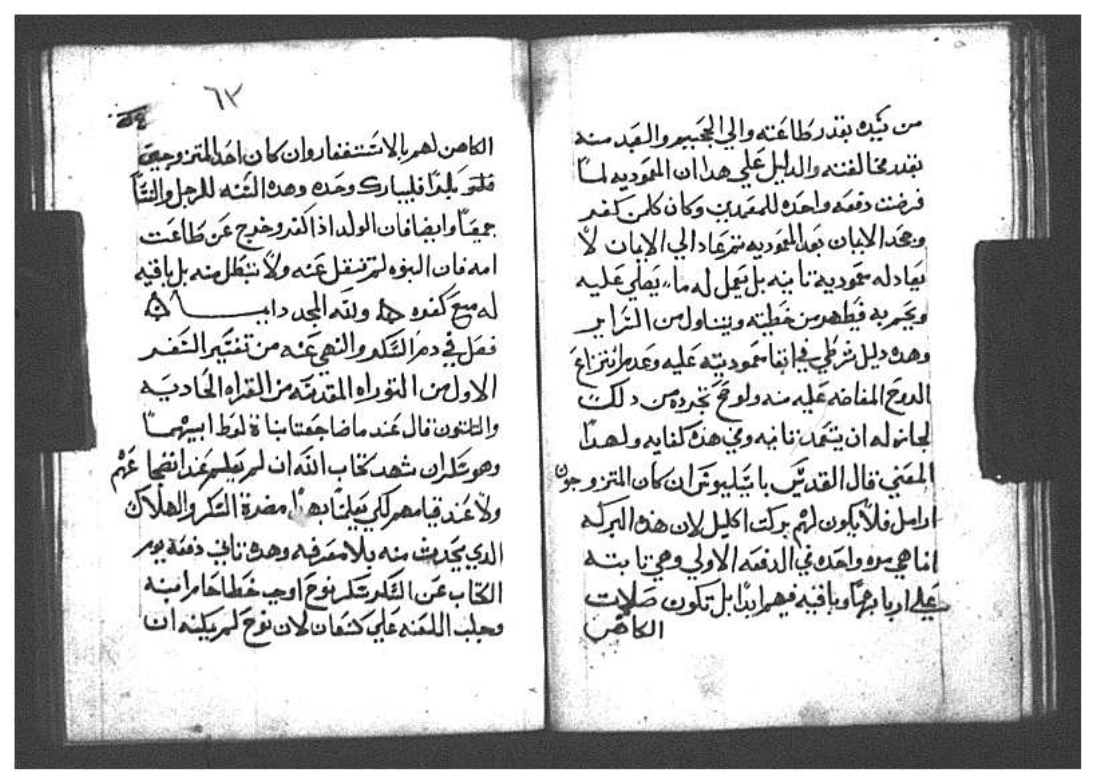 من نيده بقدر طاعته والي الجحيم والبعد منه
بقدر مخالفته والدليل علي هدا ان المعموديه لما
فرضت دفعه واحده للمعمدين وكان كلمن كفر
وجحد الايمان بعد المعموديه تم عاد الي الايمان لا
يعاد له معموديه تانيه بل يعمل له ما يصلي عليه
ويحم به فيطهر من خطيته ويتناول من السراير
وهده دليل شرطي في ابقا معموديته عليه وعدم انتزاع
الروح المفاضه عليه منه ولو صح تجرده من دلك
لجاز له ان يتعمد تانيه وفي هده كفايه ولهدا
المعني قال القديس باسيليوس ان كان المتزوجون
ارامل فلا يكون لهم بركت اكليل لان هذه البركه
انما هي مره واحده في الدفعه الاولي وهي تابته
علي اربابها وباقيه فيهم ابدا بل تكون صلات
الكاهن
٦٣
الكاهن لهم بالاستغفار وان كان احد المتزوجين
بكرا فليبارك وحده وهده السنه للرجل والنسا
جميعا وايضا فان الولد اذا كفر وخرج عن طاعت
امه فان البنوه لم تنتقل عنه ولا تتبطل منه بل باقيه
له مع كفره ولله المجد دايما
فصل في دم السكر والنهي عنه من تفسير السفر
الاول من التوراه المقدسه من القراه الحاديه
والتلتون قال عند ما ضاجعتا بناة لوط ابيهما
وهو سكران شهد كتاب الله ان لم يعلم عند انضجاعهم
ولا عند قيامهم لكي يعلمنا بهدا مضرة السكر والهلاك
الدي يحدث منه بلا معرفه وهده تاني دفعة يوم
الكتاب عن السكر سكر نوح اوجب خطا حام ابنه
وجلب اللعنه علي كنعان لان نوح لم يكنه ان